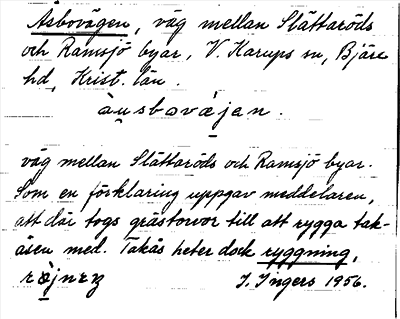 Åsbovägen, väg mellan Slättaröds
och Ramsjö byar, V. Karups sn, Bjäre
hd, Krist. län.
àusbovæ̀jan.
väg mellan Slättaröds och Ramsjö byar.
Som en förklaring uppgav meddelaren,
att där togs grästorvor till att rygga tak-
åsen med. Takås heter dock ryggning,
I. Ingers 1956.